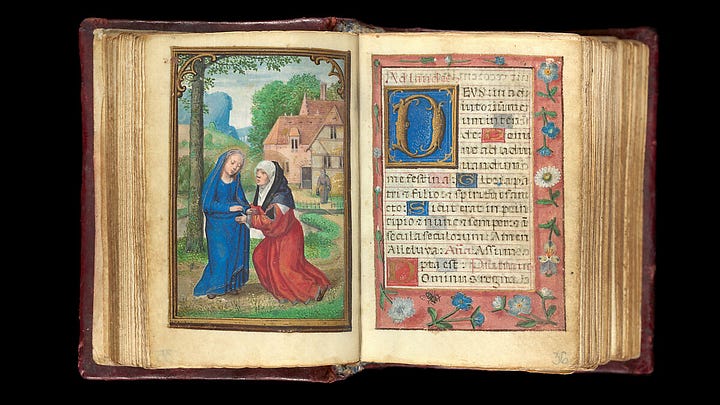 Ad
DEVS in ad
iutorium me
um inten
de: Domi
ne ad adiu
uandum
me festina: Gloria pa
tri et filio et spiritui san
cto: Sicut erat in prin
cipio et nunc et semper et in
secula seculorum: Amen
Alleluya: Aña: Assum
pta est:
Dominus regna
36